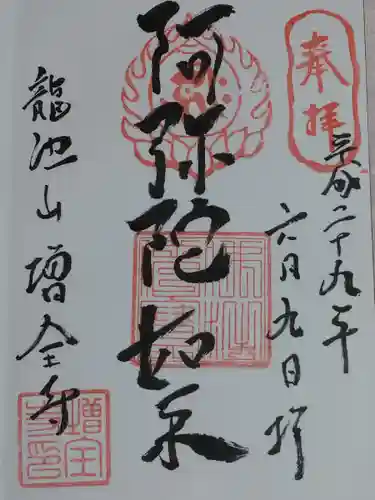 奉拝
平成二十九年
六月九日拝
阿弥陀如来
龍池山増全寺
増全
寺印